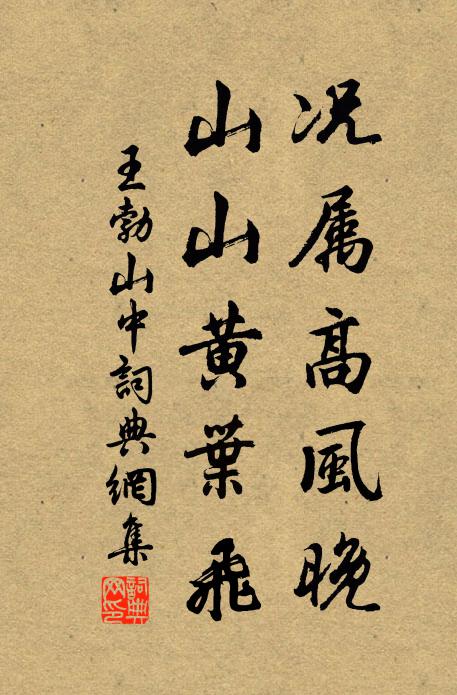 况属高風晚
山山黄葉飛
王勃山中詞典網集
詞典網印